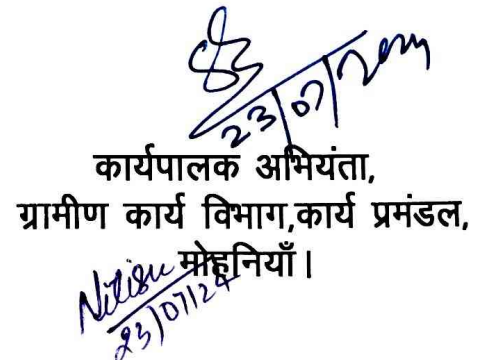 23/07/2024
कार्यपालक अभियंता,
ग्रामीण कार्य विभाग,कार्य प्रमंडल,
मोहनियाँ।
Nitish
23/07/24